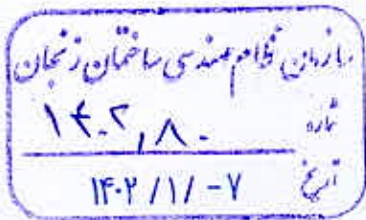 سازمان نظام مهندسی ساختمان زنجان
شماره ۱۴۰۲٫۸۰
تاریخ ۱۴۰۲/۱/-۷